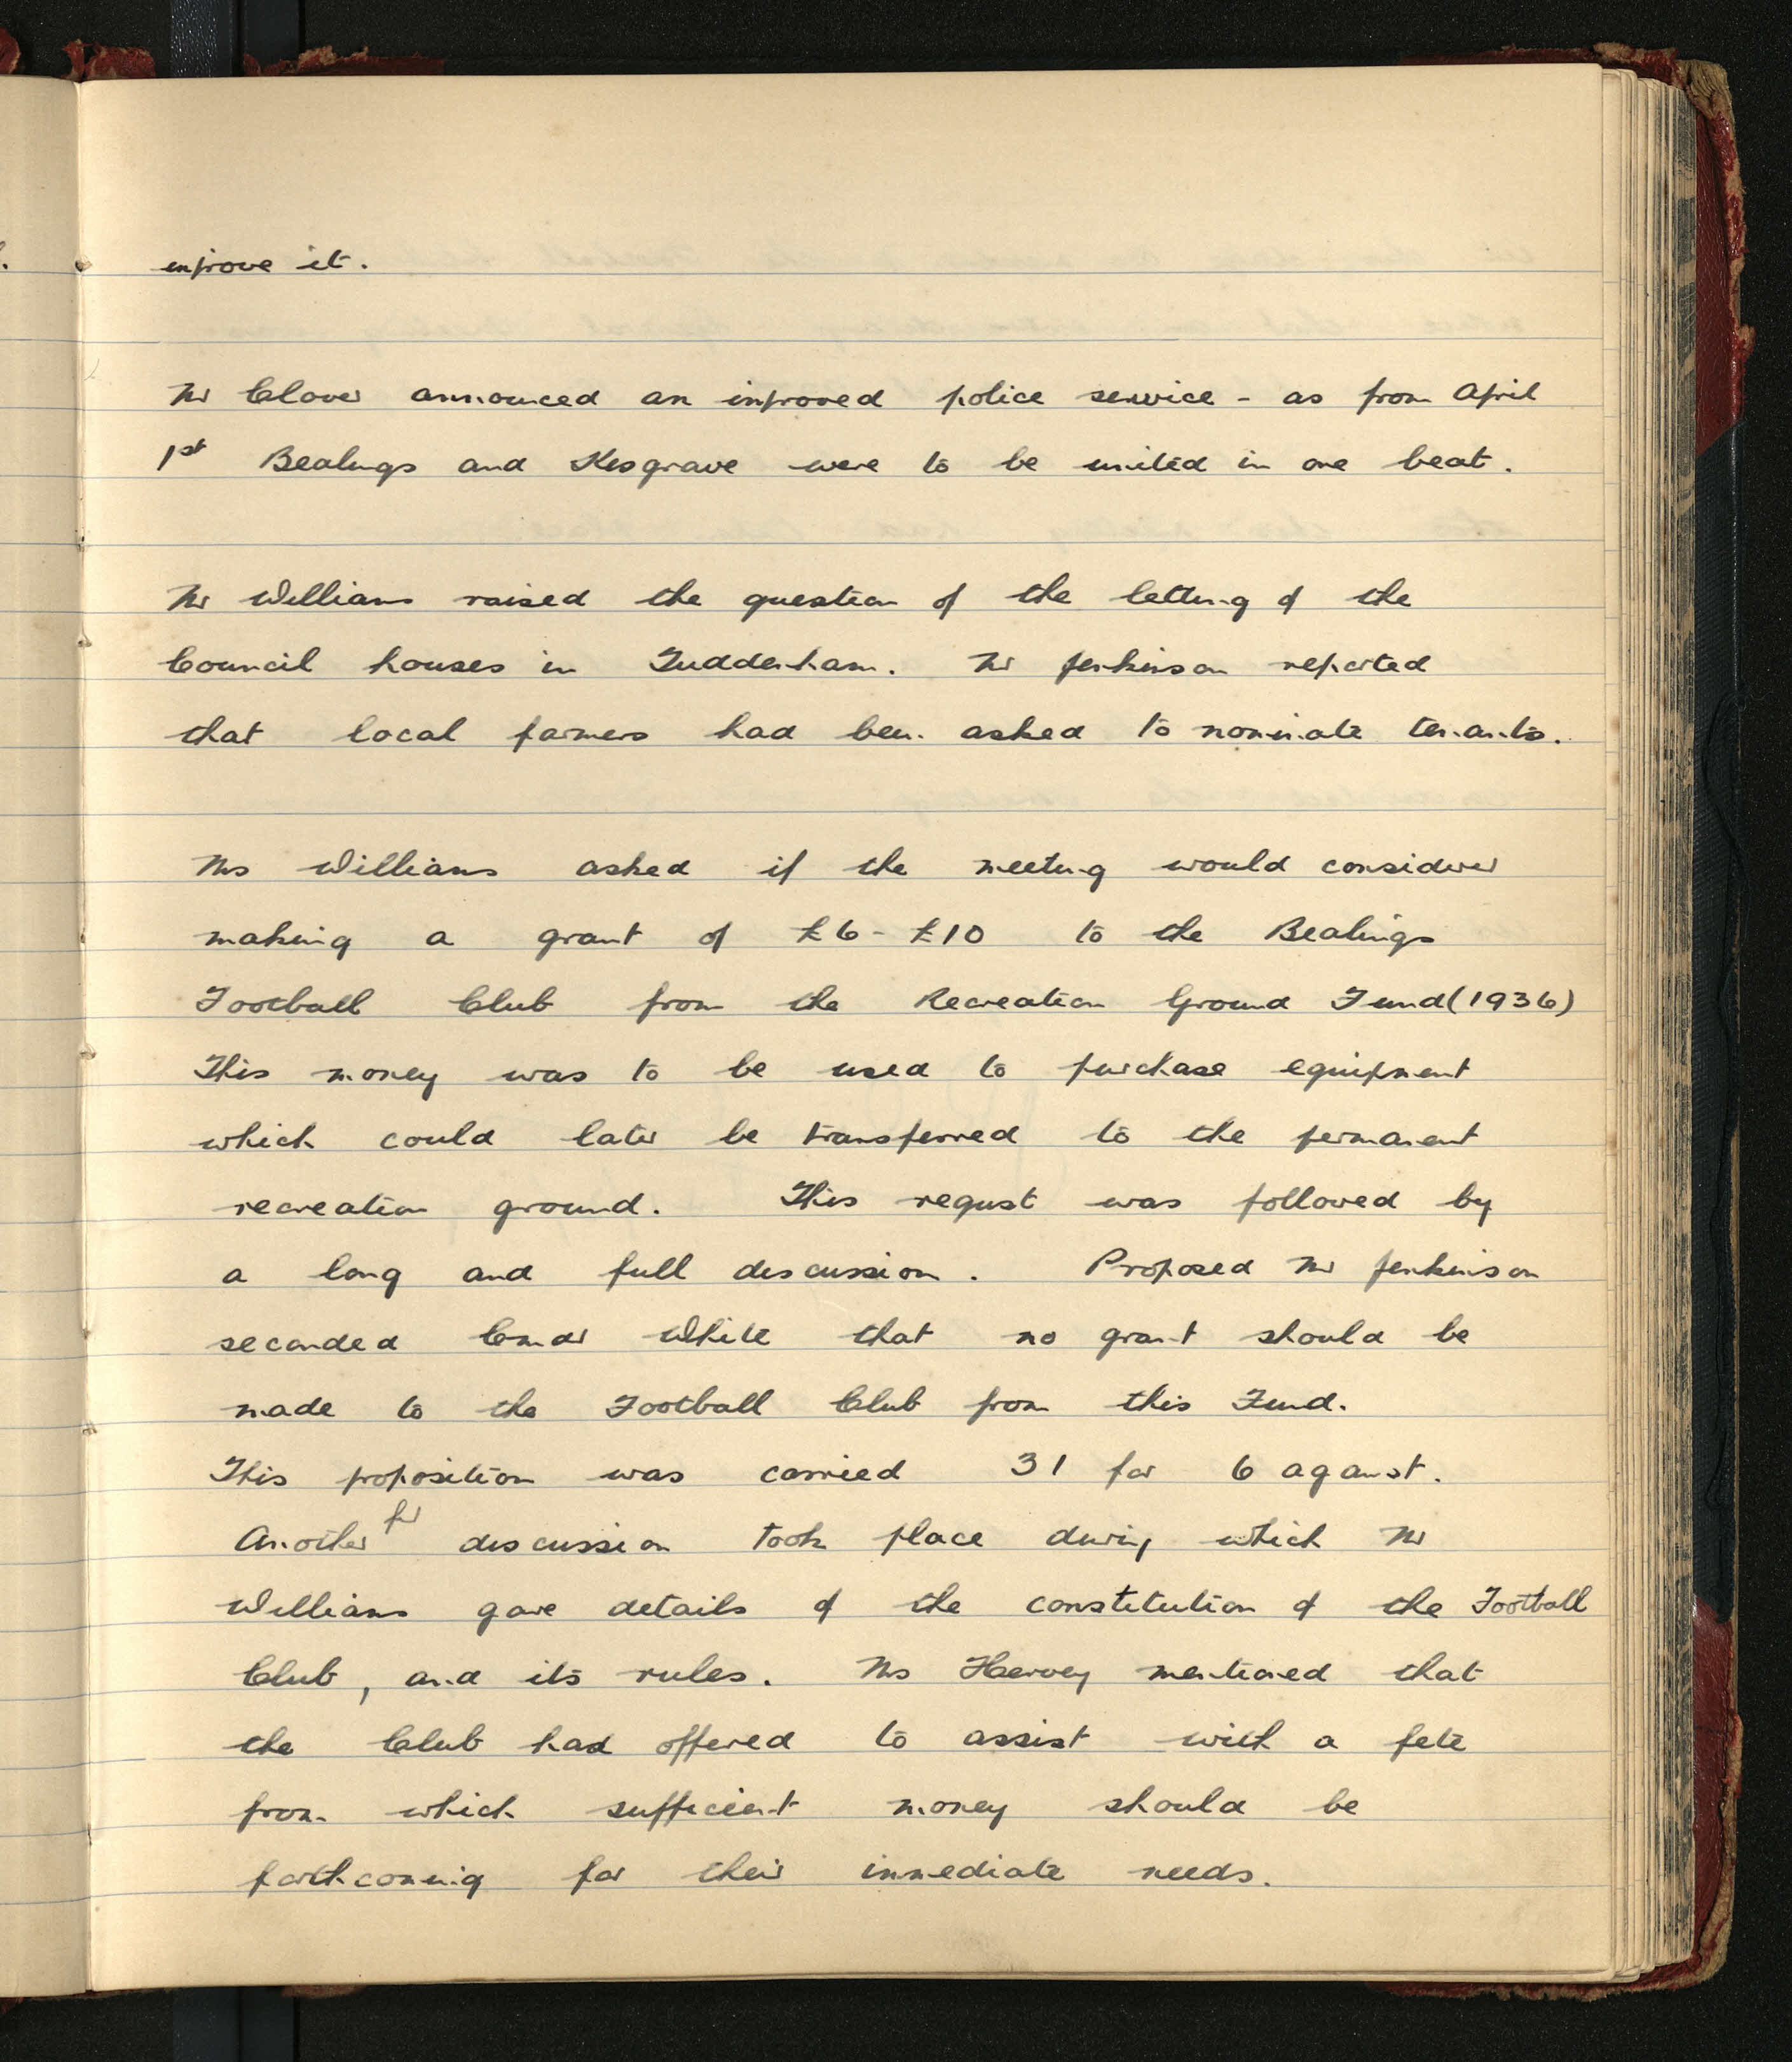 improve it.
Mr Clover announced an improved police service - as from April
1st Bealings and Kesgrave were to be united in one beat.
Mr Williams raised the question of the letting of the
Council houses in Tuddenham. Mr Jenkinson reported
that local farmers had been asked to nominate tenants.
Mrs Williams asked if the meeting would consider
making a grant of £6 - £10 to the Bealings
Football Club from the Recreation Ground Fund (1936)
This money was to be used to purchase equipment
which could later be transferred to the permanent
recreation ground. This requst was followed by
a long and full discussion. Proposed Mr Jenkinson
seconded Cmdr White that no grant should be
made to the Football Club from this Fund.
This proposition was carried 31 for 6 against.
Another discussion took place during which Mr
Williams gave details of the constitution of the Football
Club, and its rules. Mrs Hervey mentioned that
the Club had offered to assist with a fete
from which sufficient money should be
forthcoming for their immediate needs.